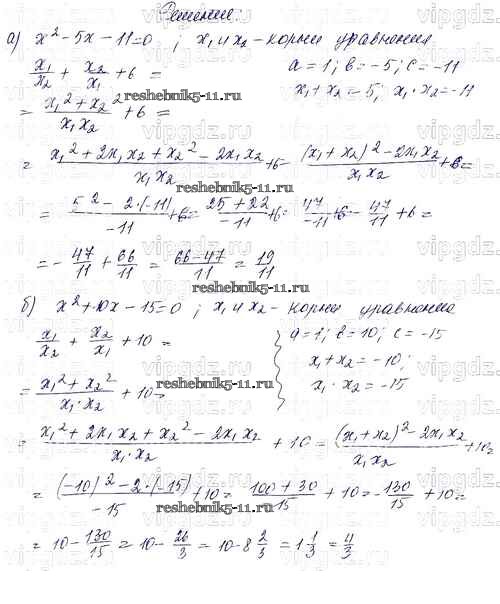 Решение:
а) x² - 5x - 11 = 0 ; x₁ и x₂ - корни уравнения
x₁/x₂ + x₂/x₁ + 6 =
a = 1; b = -5; c = -11
x₁ + x₂ = 5; x₁ · x₂ = -11
= (x₁² + x₂²)/(x₁x₂) + 6 =
reshebnik5-11.ru
= (x₁² + 2x₁x₂ + x₂² - 2x₁x₂)/(x₁x₂) + 6 = ((x₁ + x₂)² - 2x₁x₂)/(x₁x₂) + 6 =
reshebnik5-11.ru
= (5² - 2·(-11))/(-11) + 6 = (25 + 22)/(-11) + 6 = 47/(-11) + 6 = - 47/11 + 6 =
= - 47/11 + 66/11 = (66 - 47)/11 = 19/11
reshebnik5-11.ru
б) x² + 10x - 15 = 0 ; x₁ и x₂ - корни уравнения
x₁/x₂ + x₂/x₁ + 10 =
a = 1; b = 10; c = -15
x₁ + x₂ = -10;
x₁ · x₂ = -15
= (x₁² + x₂²)/(x₁ · x₂) + 10 =
reshebnik5-11.ru
= (x₁² + 2x₁x₂ + x₂² - 2x₁x₂)/(x₁ · x₂) + 10 = ((x₁ + x₂)² - 2x₁x₂)/(x₁x₂) + 10 =
reshebnik5-11.ru
= ((-10)² - 2·(-15))/(-15) + 10 = (100 + 30)/(-15) + 10 = - 130/15 + 10 =
= 10 - 130/15 = 10 - 26/3 = 10 - 8 2/3 = 1 1/3 = 4/3
reshebnik5-11.ru
vipgdz.ru